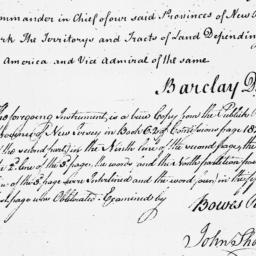 ommander in Chief of our said Provinces of New
rk The Territorys and Tracts of Land Depending
America and Vice Admiral of the same
Barclay D
he foregoing Instrument, is a true Copy from the Publick
of New Jersey in Book C2 of page 18
the second part) in the Ninth line of the second page, the
2d line of the 3d page, the words and the Ninth
of the 3d page were Interlined and the word four) in the
page was Obliterated. Examined by
Bowes
John Sho